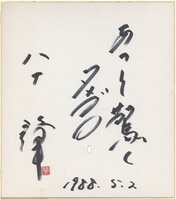 あっと驚く
タメゴロー
ハナ 肇
1988.5.2